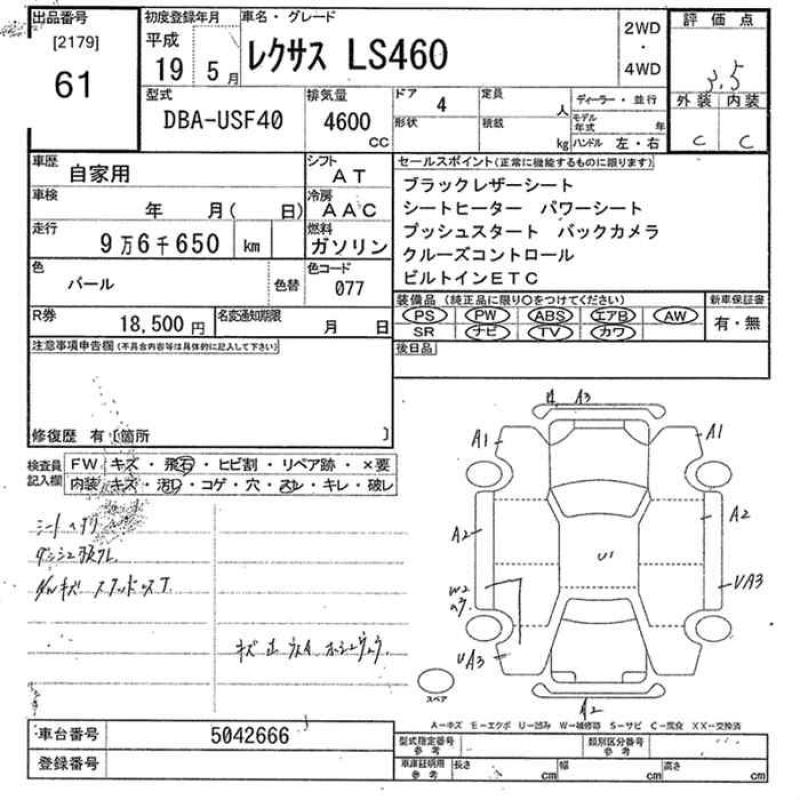 出品番号 初度登録年月 車名・グレード 2WD 評価点
[2179] 平成 ・
61 19 5月 レクサス LS460 4WD 3.5
型式 排気量 ドア 4 定員 人 ディーラー・並行 外装 内装
DBA-USF40 4600 cc 形状 積載 kg モデル年式 年 C C
ハンドル 左・右
車歴 自家用 シフト AT セールスポイント(正常に機能するものに限ります)
車検 年 月( 日) 冷房 AAC ブラックレザーシート
走行 9万6千650 km 燃料 ガソリン シートヒーター パワーシート
プッシュスタート バックカメラ
色 パール 色替 色コード 077 クルーズコントロール
ビルトインETC
R券 18,500円 名変通知期限 月 日 装備品(純正品に限り○をつけてください) 新車保証書
PS PW ABS エアB AW 有・無
SR ナビ TV カワ
注意事項申告欄(不具合内容等は具体的に記入して下さい) 後日品
修復歴 有〔箇所 〕
検査員記入欄 FW キズ・飛石・ヒビ割・リペア跡・×要
内装 キズ・汚れ・コゲ・穴・スレ・キレ・破レ
A3
A1 A1
A2 A2
U1
W2 UA3
UA3
スペア
A2
A-キズ E-エクボ U-凹み W-補修跡 S-サビ C-腐食 XX-交換済
車台番号 5042666 型式指定番号 参考 類別区分番号 参考
登録番号 車庫証明用 参考 長さ cm 幅 cm 高さ cm